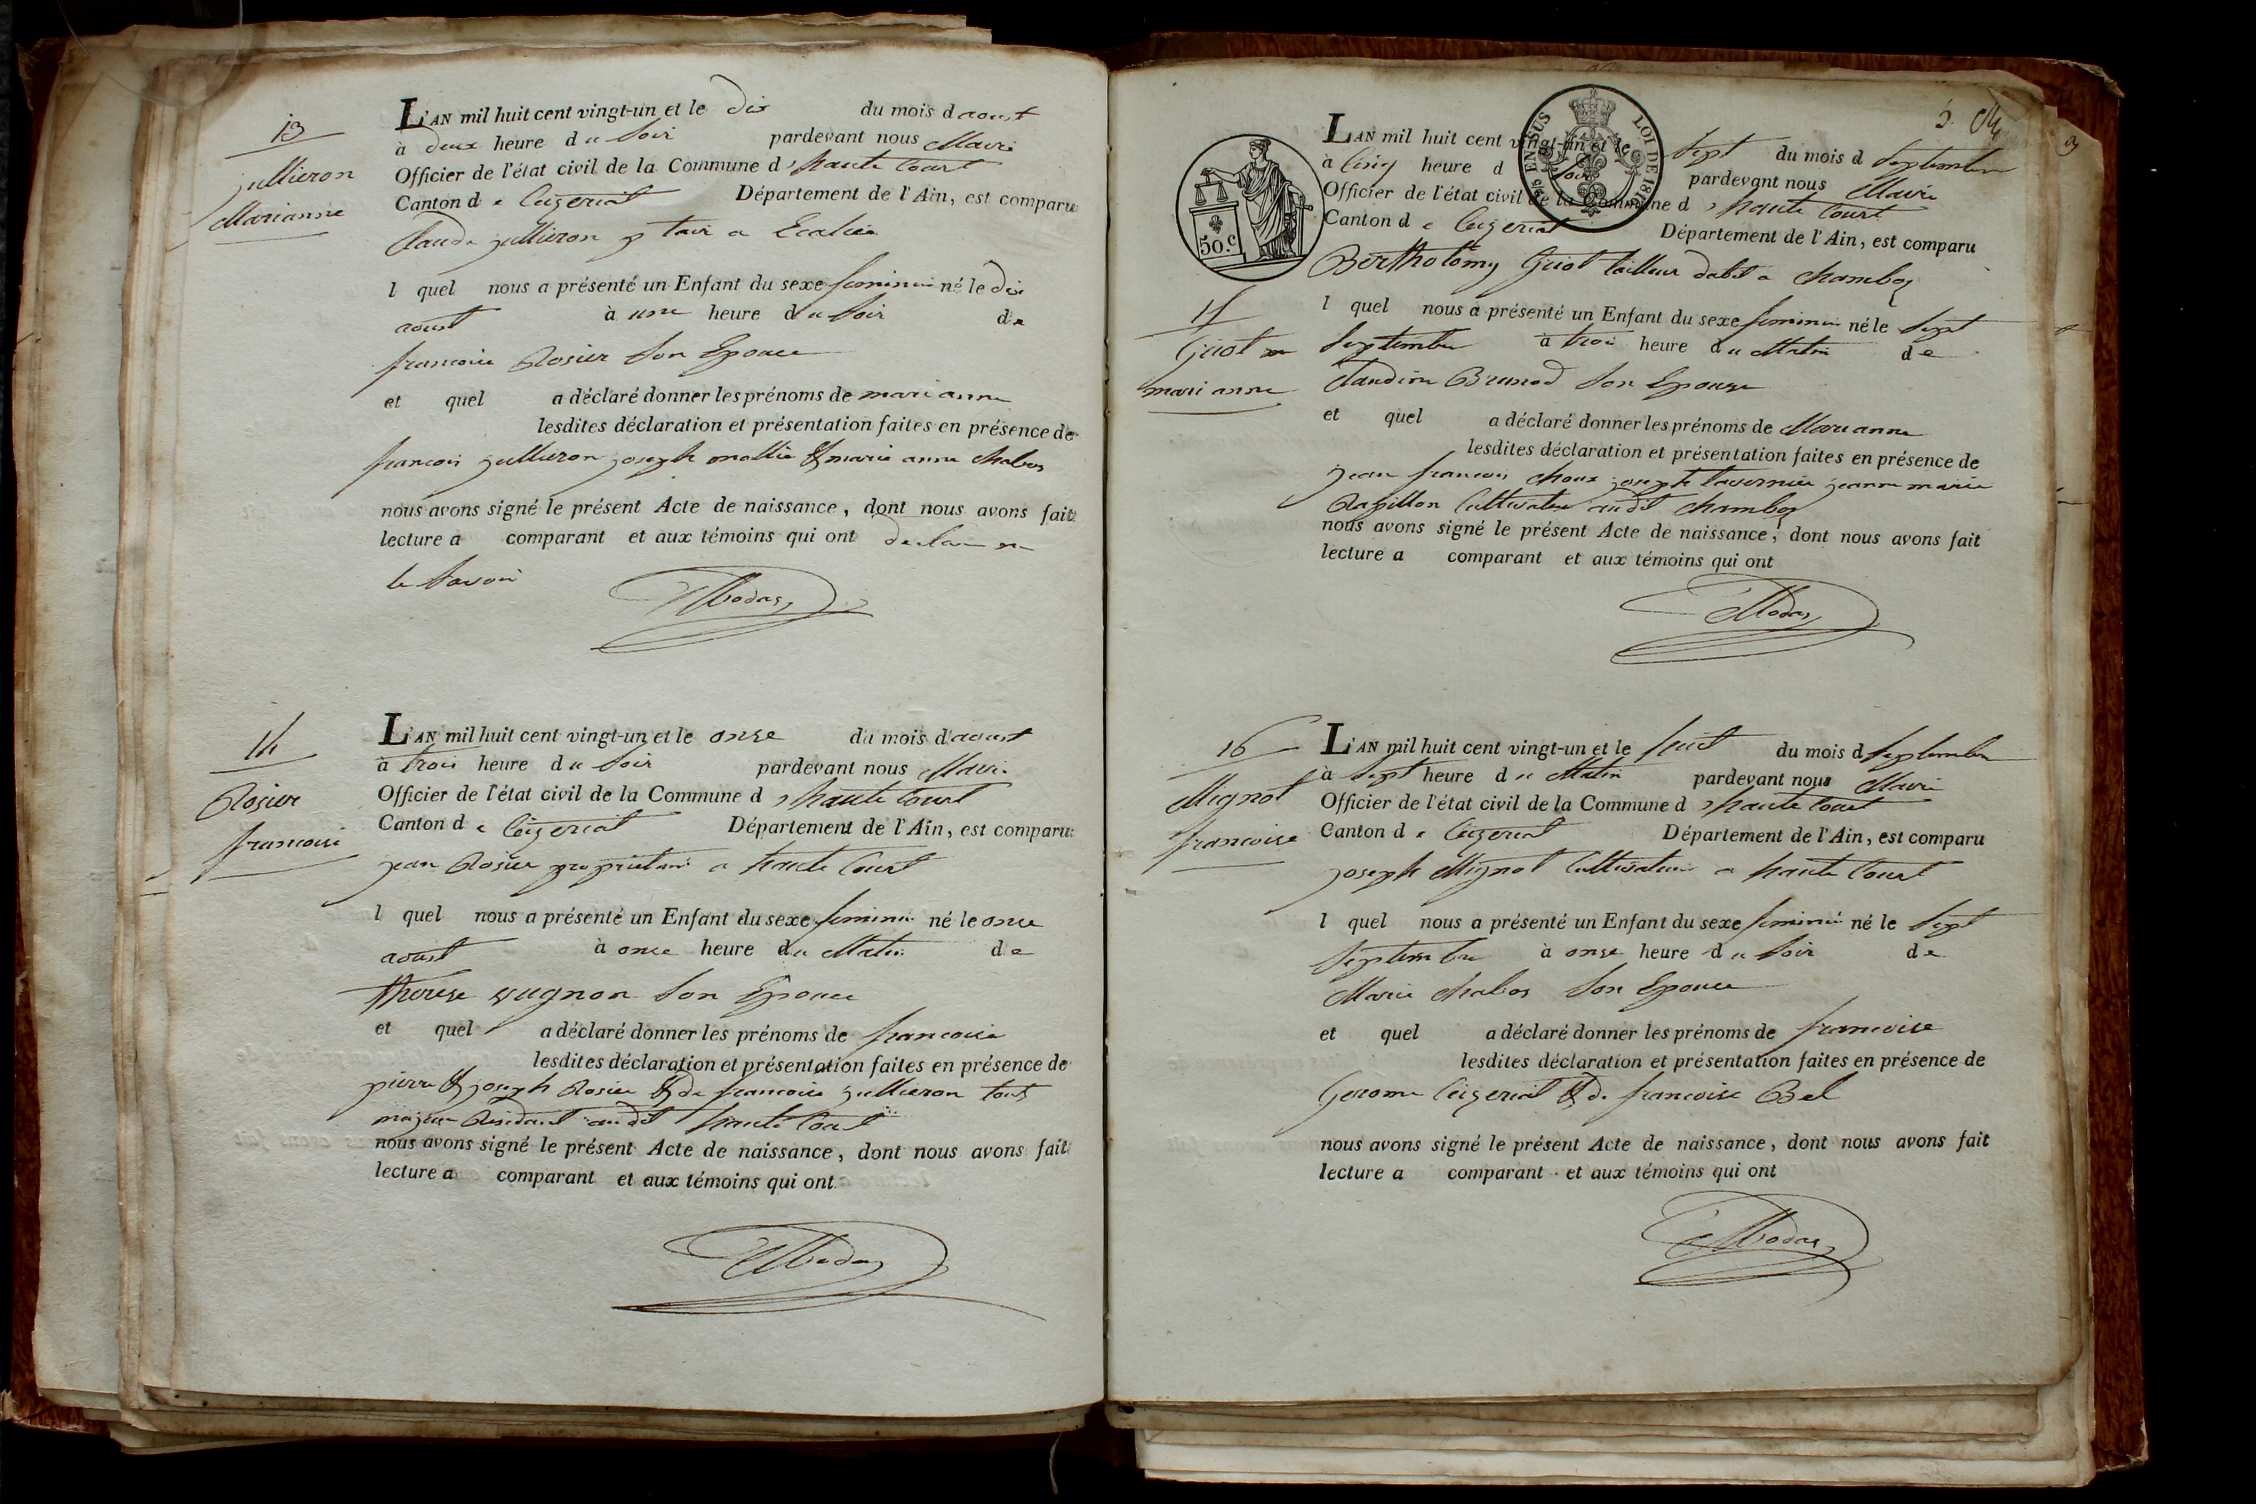 13
jullieron
Marianne
L'AN mil huit cent vingt-un et le dix du mois d'aoust
à deux heure du soir pardevant nous Maire
Officier de l'état civil de la Commune d'haute Court
Canton de Ceizeriat Département de l'Ain, est comparu
Claude jullieron
l quel nous a présenté un Enfant du sexe feminin né le dix
aoust à une heure du soir de
francoise Rosier son Epouce
et quel a déclaré donner les prénoms de marianne
lesdites déclaration et présentation faites en présence de
francois jullieron joseph mollie & marie anne Chabos
nous avons signé le présent Acte de naissance, dont nous avons fait
lecture a comparant et aux témoins qui ont
le savoir
14
Rosier
francoise
L'AN mil huit cent vingt-un et le onze du mois d'aoust
à trois heure du soir pardevant nous Maire
Officier de l'état civil de la Commune d'haute Court
Canton de Ceizeriat Département de l'Ain, est comparu
jean Rosier proprietaire a haute Court
l quel nous a présenté un Enfant du sexe feminin né le once
aoust à once heure du Matin de
therese gugnon son Epouce
et quel a déclaré donner les prénoms de francoise
lesdites déclaration et présentation faites en présence de
pierre & joseph Rosier & de francoise jullieron tous
majeur Residant audit haute Court
nous avons signé le présent Acte de naissance, dont nous avons fait
lecture a comparant et aux témoins qui ont
5
50.c
1815 EN SUS LOI DE 1816
15
Guot
marianne
L'AN mil huit cent vingt-un et le Sept du mois d Septembre
à Cinq heure d soir pardevant nous Maire
Officier de l'état civil de la Commune d'haute Court
Canton de Ceizeriat Département de l'Ain, est comparu
Bertholomy Guot tailleur dabit a Chambos
l quel nous a présenté un Enfant du sexe feminin né le Sept
Septembre à trois heure du Matin de
Claudine Brunod son Epouse
et quel a déclaré donner les prénoms de Marianne
lesdites déclaration et présentation faites en présence de
jean francois Choux joseph tavernier jeanne marie
Rapillon Cultivateur audit Chambos
nous avons signé le présent Acte de naissance, dont nous avons fait
lecture a comparant et aux témoins qui ont
16
Mignot
francoise
L'AN mil huit cent vingt-un et le huit du mois d Septembre
à Sept heure du Matin pardevant nous Maire
Officier de l'état civil de la Commune d'haute Court
Canton de Ceizeriat Département de l'Ain, est comparu
joseph Mignot Cultivateur a haute Court
l quel nous a présenté un Enfant du sexe feminin né le Sept
Septembre à onze heure du soir de
Marie Chabos son Epouce
et quel a déclaré donner les prénoms de francoise
lesdites déclaration et présentation faites en présence de
Gerome Ceizeriat & de francoise Bel
nous avons signé le présent Acte de naissance, dont nous avons fait
lecture a comparant et aux témoins qui ont